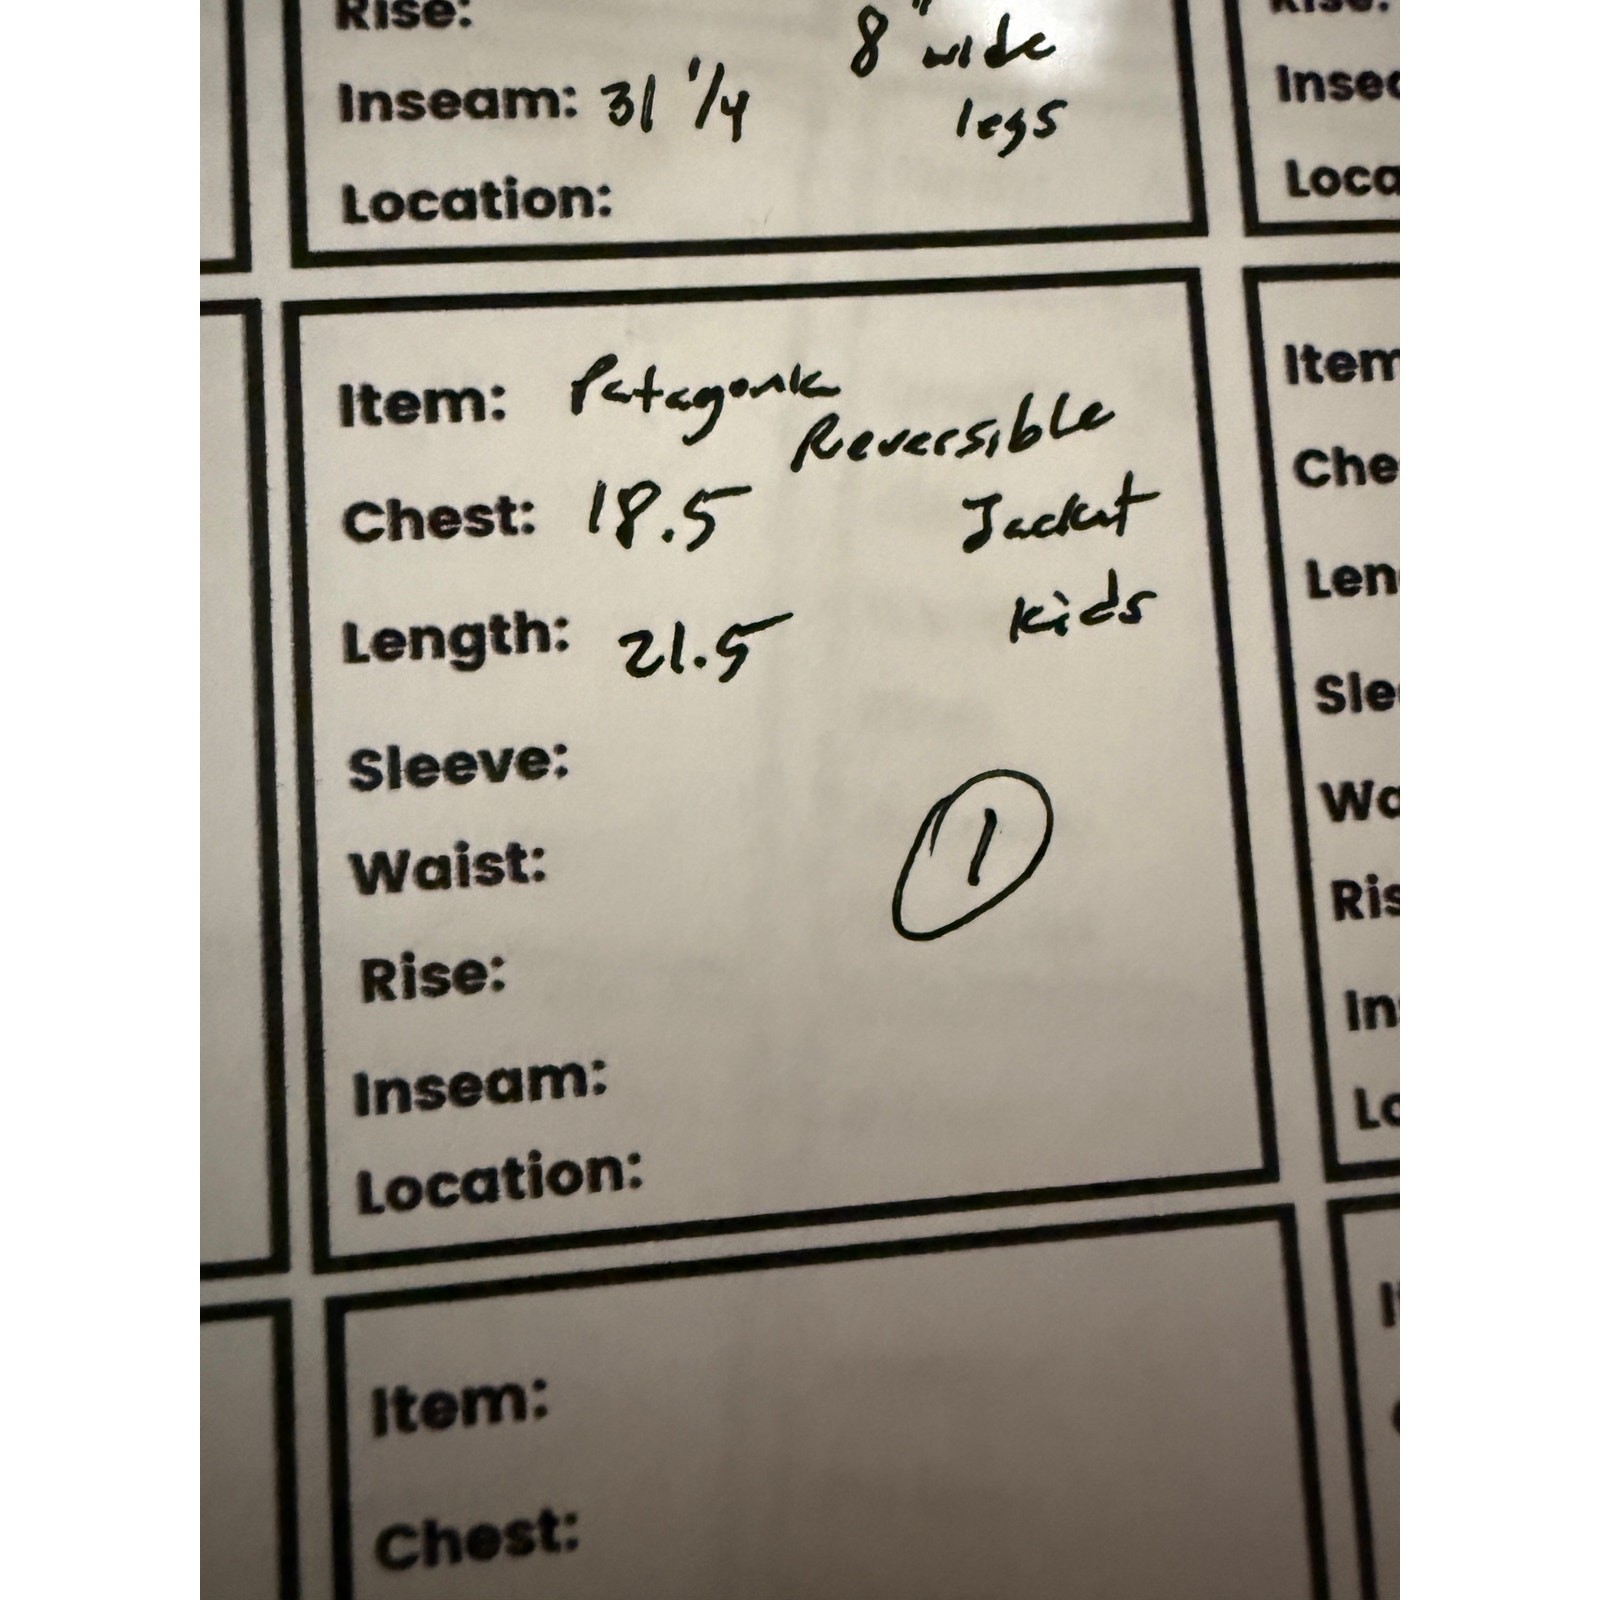 Rise:
8" wide
Inseam: 31 1/4
legs
Location:
Rise:
Inseam
Location
Item: Patagonia
Reversible
Jacket
Kids
Chest: 18.5
Length: 21.5
Sleeve:
Waist:
Rise:
Inseam:
Location:
1
Item
Che
Len
Sle
Wa
Ris
In
Lo
Item:
Chest: